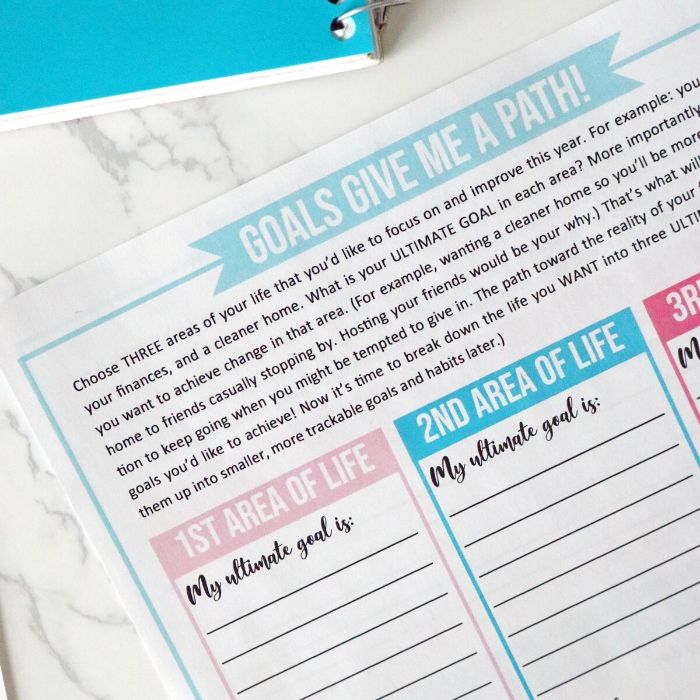 GOALS GIVE ME A PATH!
Choose THREE areas of your life that you'd like to focus on and improve this year. For example: you
your finances, and a cleaner home. What is your ULTIMATE GOAL in each area? More importantly
you want to achieve change in that area. (For example, wanting a cleaner home so you'll be more
home to friends casually stopping by. Hosting your friends would be your why.) That's what will
tion to keep going when you might be tempted to give in. The path toward the reality of your
goals you'd like to achieve! Now it's time to break down the life you WANT into three ULTI
them up into smaller, more trackable goals and habits later.)
1ST AREA OF LIFE
My ultimate goal is:
2ND AREA OF LIFE
My ultimate goal is:
3R
M